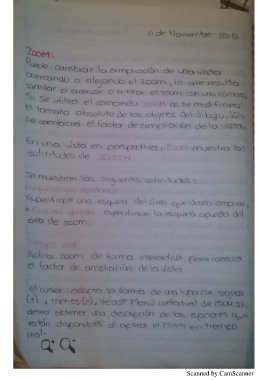 11 de Noviembre 2015
ZOOM:
Puede cambiar la ampliación de una vista
acercando o alejando el zoom, lo que resulta
similar a acercar o retirar el zoom con una cámara,
Si se utiliza el comando zoom no se modificara
el tamaño absoluto de los objetos del dibujo, Solo
se cambiará el factor de ampliación de la vista,
En una vista en perspectiva, Zoom muestra las
solicitudes de 3DZOOM
Se muestran las siguientes solicitudes:
Esquina de ventana
Especifique una esquina del área que desea ampliar,
Esquina opuesta: especifique la esquina opuesta del
área de zoom.
Tiempo real:
Aplica zoom de forma interactiva para cambiar
el factor de ampliación de la vista
el cursor adopta la forma de una lupa con signos
(+) y menos (-), Véase Menú contextual de ZOOM si
desea obtener una descripción de las opciones que
están disponibles al aplicar el zoom en tiempo
real.
Scanned by CamScanner